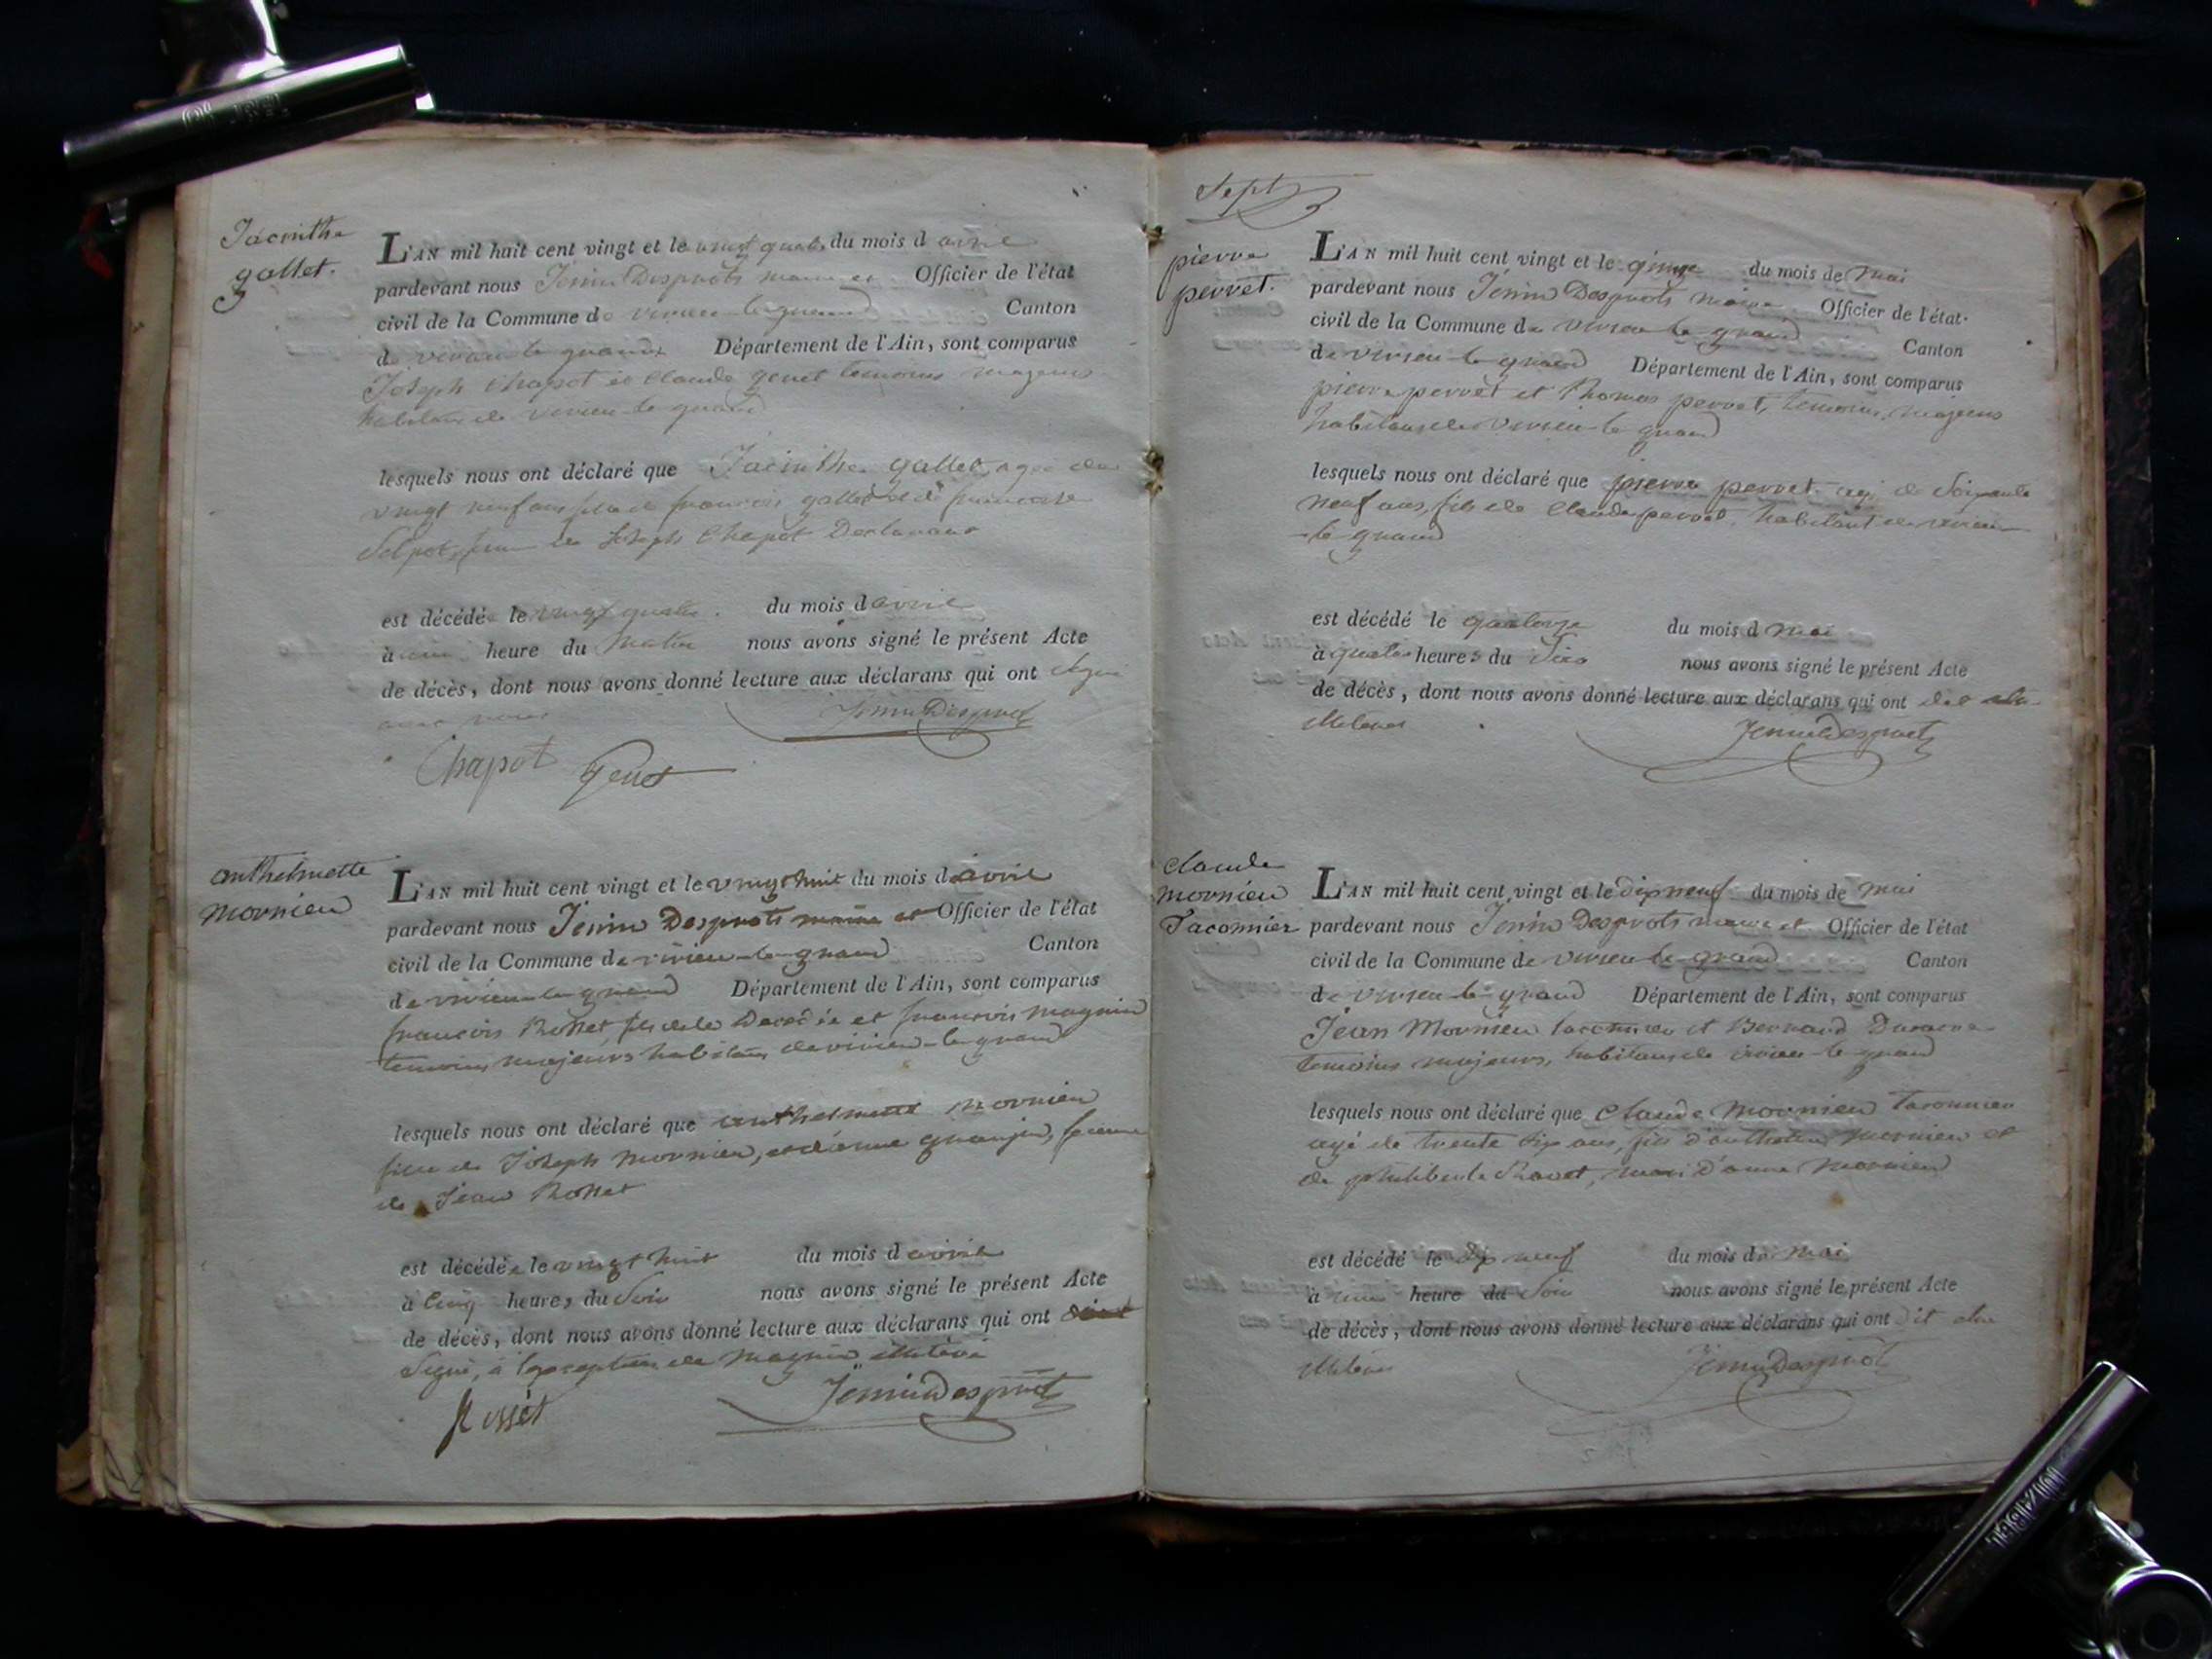 Jacinthe
gallet.
L'AN mil huit cent vingt et le vingt quatre du mois d avril
pardevant nous Jenin Desprots maire et Officier de l'état
civil de la Commune de virieu-le-grand Canton
de virieu le grand Département de l'Ain, sont comparus
Joseph Chapot et Claude genet temoins majeurs
habitans de virieu-le grand
lesquels nous ont déclaré que Jacinthe gallet, agée de
vingt neuf ans fille de françois gallet et de francoise
femme de Joseph Chapot
est décédée le vingt quatre. du mois d avril
à une heure du matin nous avons signé le présent Acte
de décès, dont nous avons donné lecture aux déclarans qui ont signé
avec nous
Jenin Desprots
Chapot Genet
anthelmette
mornieu
L'AN mil huit cent vingt et le vingt huit du mois d avril
pardevant nous Jenin Desprots maire et Officier de l'état
civil de la Commune de virieu-le-grand Canton
de virieu-le-grand Département de l'Ain, sont comparus
francois Rosset, fils de la Decedée et francois magnin
temoins majeurs habitans de virieu-le-grand
lesquels nous ont déclaré que anthelmette mornieu
fille de Joseph mornieu, et d'anne femme
de Jean Rosset
est décédée le vingt huit du mois d avril
à Cinq heures du Soir nous avons signé le présent Acte
de décès, dont nous avons donné lecture aux déclarans qui ont
Signé, à l'exception de magnin illitéré
Rosset Jenin Desprots
Sept
pierre
perret.
L'AN mil huit cent vingt et le quinze du mois de mai
pardevant nous Jenin Desprots maire Officier de l'état-
civil de la Commune de virieu le grand Canton
de virieu-le grand Département de l'Ain, sont comparus
pierre perret et thomas perret, temoins, majeurs
habitans de virieu-le grand
lesquels nous ont déclaré que pierre perret agé de Soixante
neuf ans, fils de Claude perret, habitant de virieu
-le grand
est décédé le quatorze du mois d mai
à quatre heures du Soir nous avons signé le présent Acte
de décès, dont nous avons donné lecture aux déclarans qui ont
Jenin Desprots
claude
mornieu
Taconnier
L'AN mil huit cent vingt et le dix neuf du mois de mai
pardevant nous Jenin Desprots maire et Officier de l'état
civil de la Commune de virieu le-grand Canton
de virieu-le grand Département de l'Ain, sont comparus
Jean Mornieu taconnier et Bernard
temoins majeurs, habitans de virieu-le-grand
lesquels nous ont déclaré que Claude Mornieu Taconnier
agé de trente six ans, fils d'anthelme Mornieu et
de philiberte Ravet, mari d'anne Mornieu
est décédé le dix neuf du mois de mai
à une heure du Soir nous avons signé le présent Acte
de décès, dont nous avons donné lecture aux déclarans qui ont dit etre
Jenin Desprots